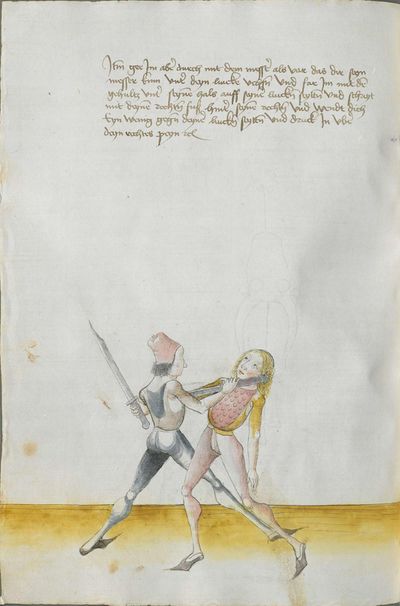 Item ger im aber durch mit dem messer als vor das dir seyn
messer kum unter deyn lincke uchsen und far im mit dem
gehultz unter seynen hals auff seyne lincken seyten und schreyt
mit deynem rechten fuß hinter seynen rechten und wendt dich
eyn wenig gegen deyner lincken seyten und druck in uber
deyn rechtes peyn etc